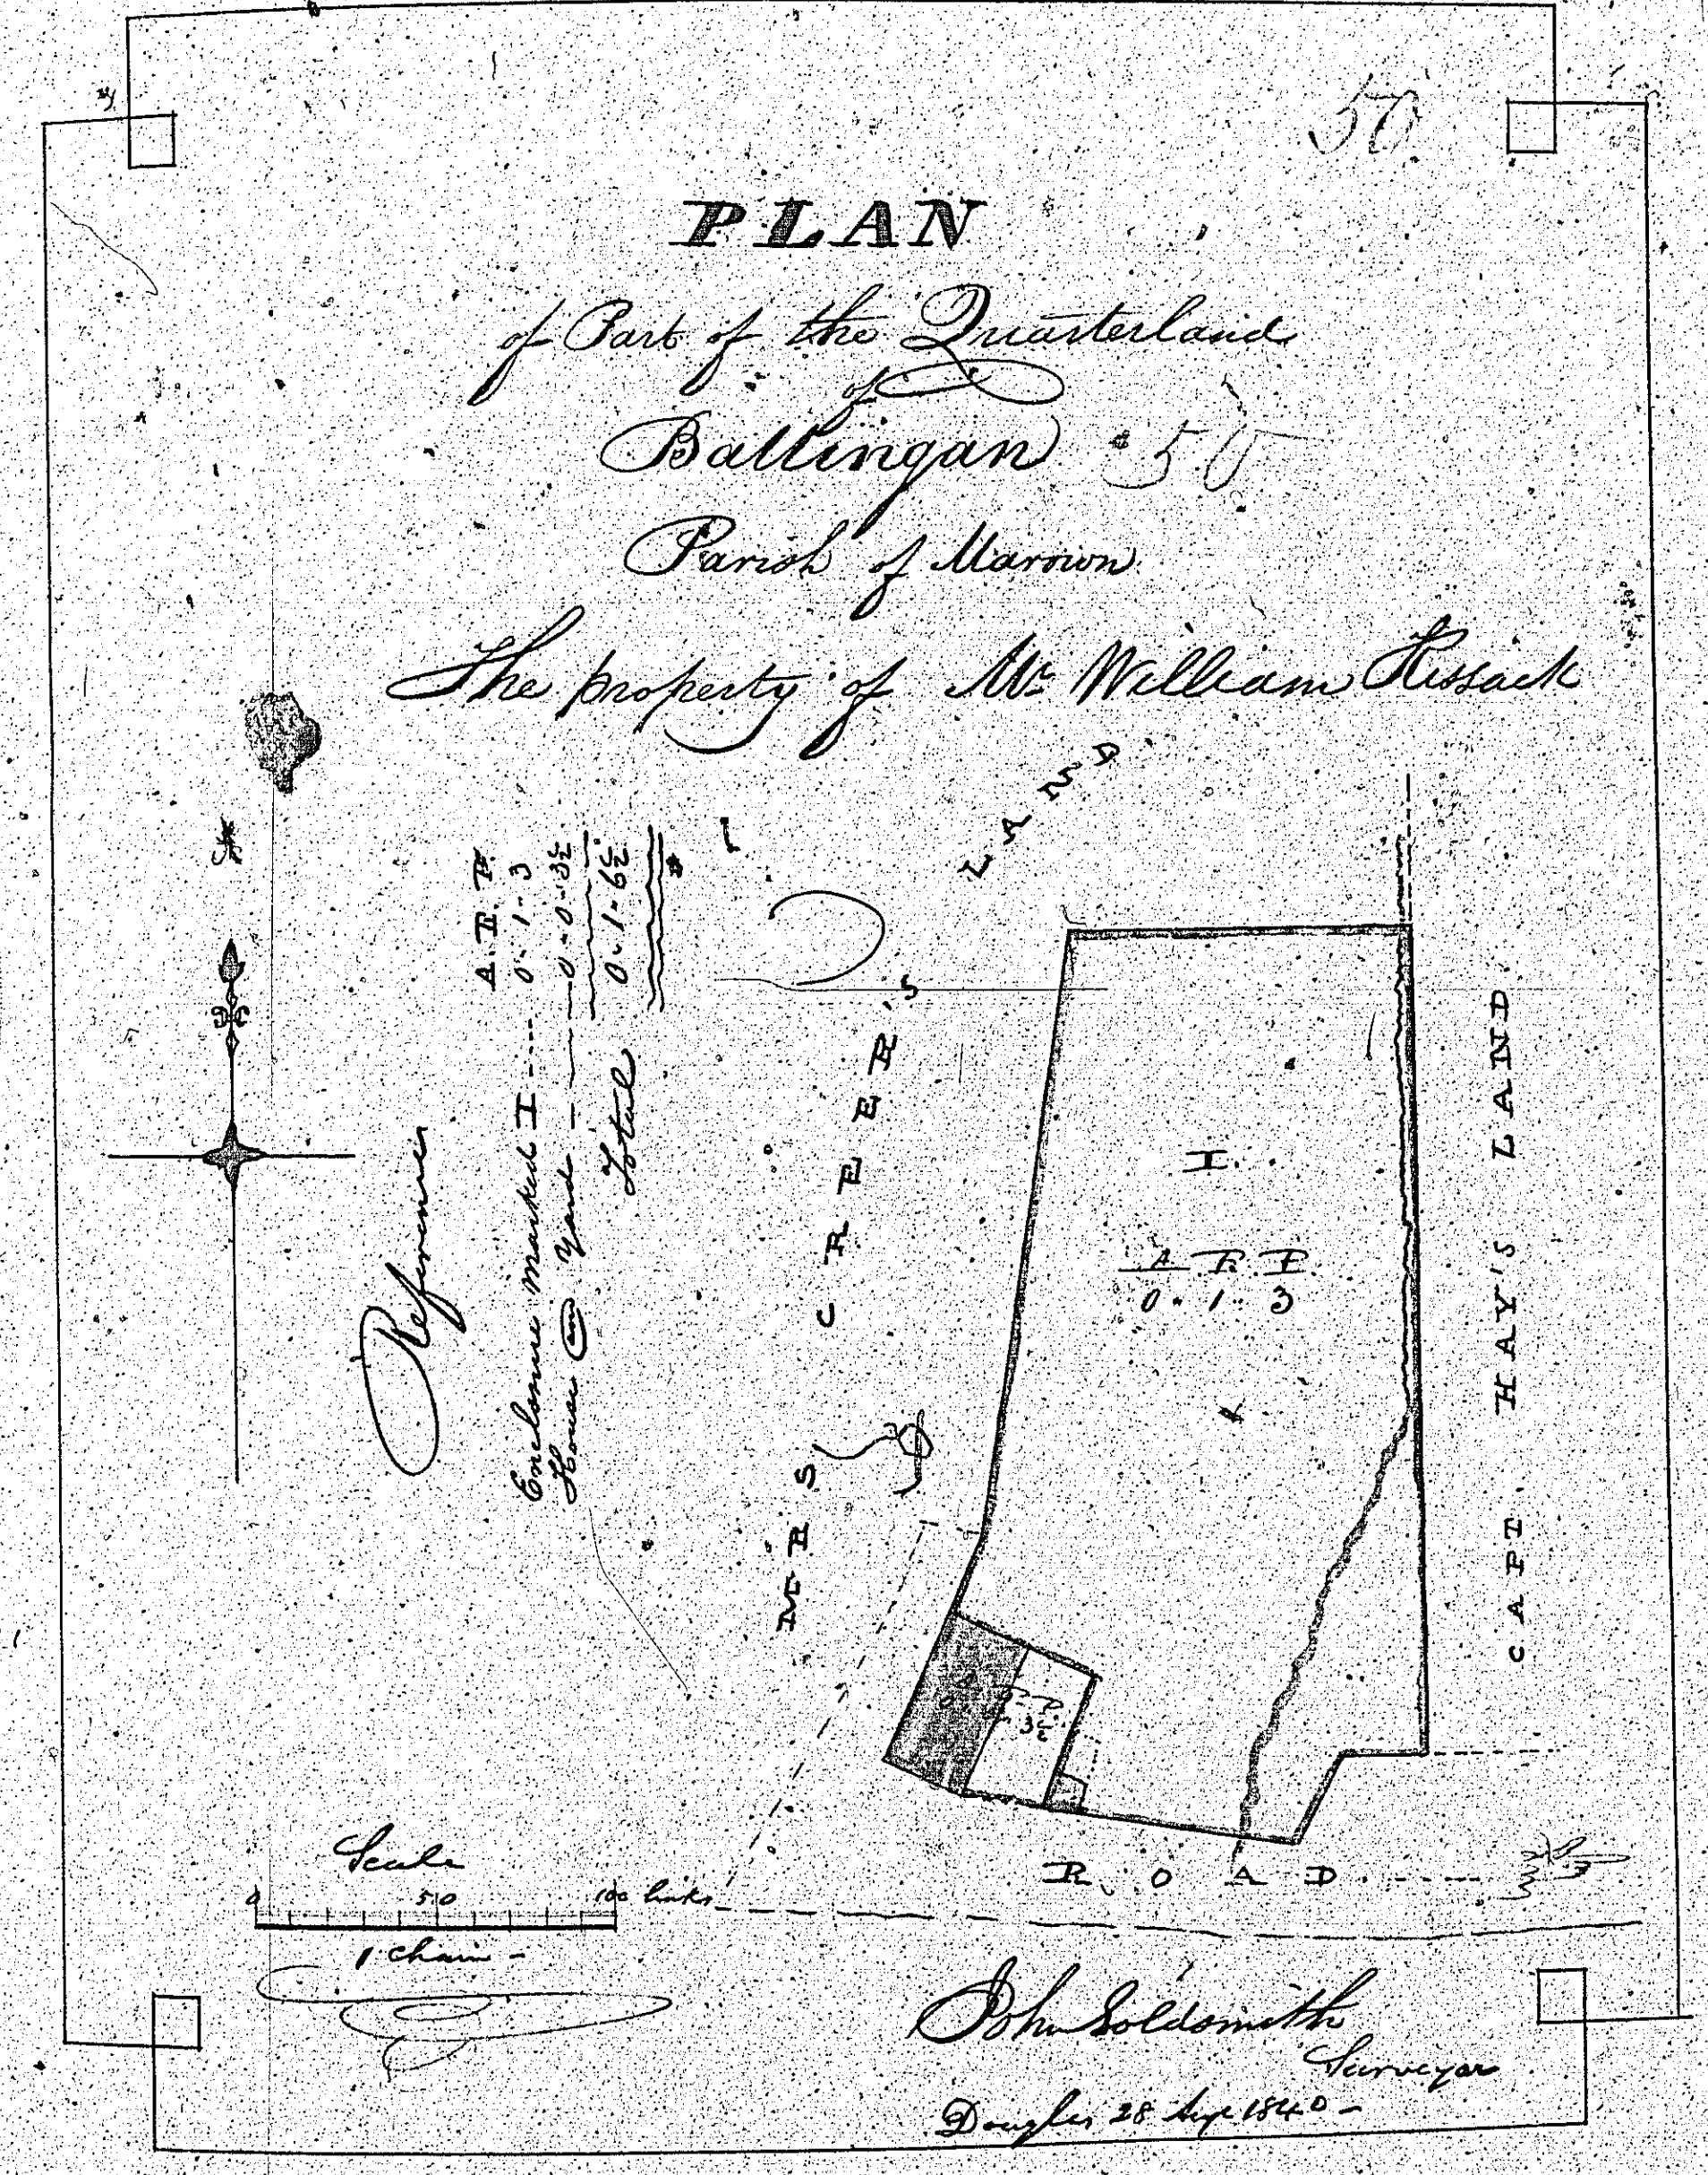 50
PLAN
of Part of the Quarterland
of
Ballingan 50
Parish of Marown
The property of Mr William Kissack
Reference
A. R. P.
Enclosure marked I ---- 0 - 1 - 3
House & Yard — — 0 - 0 - 3½
Total 0 - 1 - 6½
MRS CREER'S LAND
I.
A. R. P.
0 - 1 - 3
CAPT. HAY'S LAND
A. R. P.
0 3½
ROAD
Scale
0 50 100 links
1 chain -
John Goldsmith
Surveyor
Douglas 28 Aug 1840 -